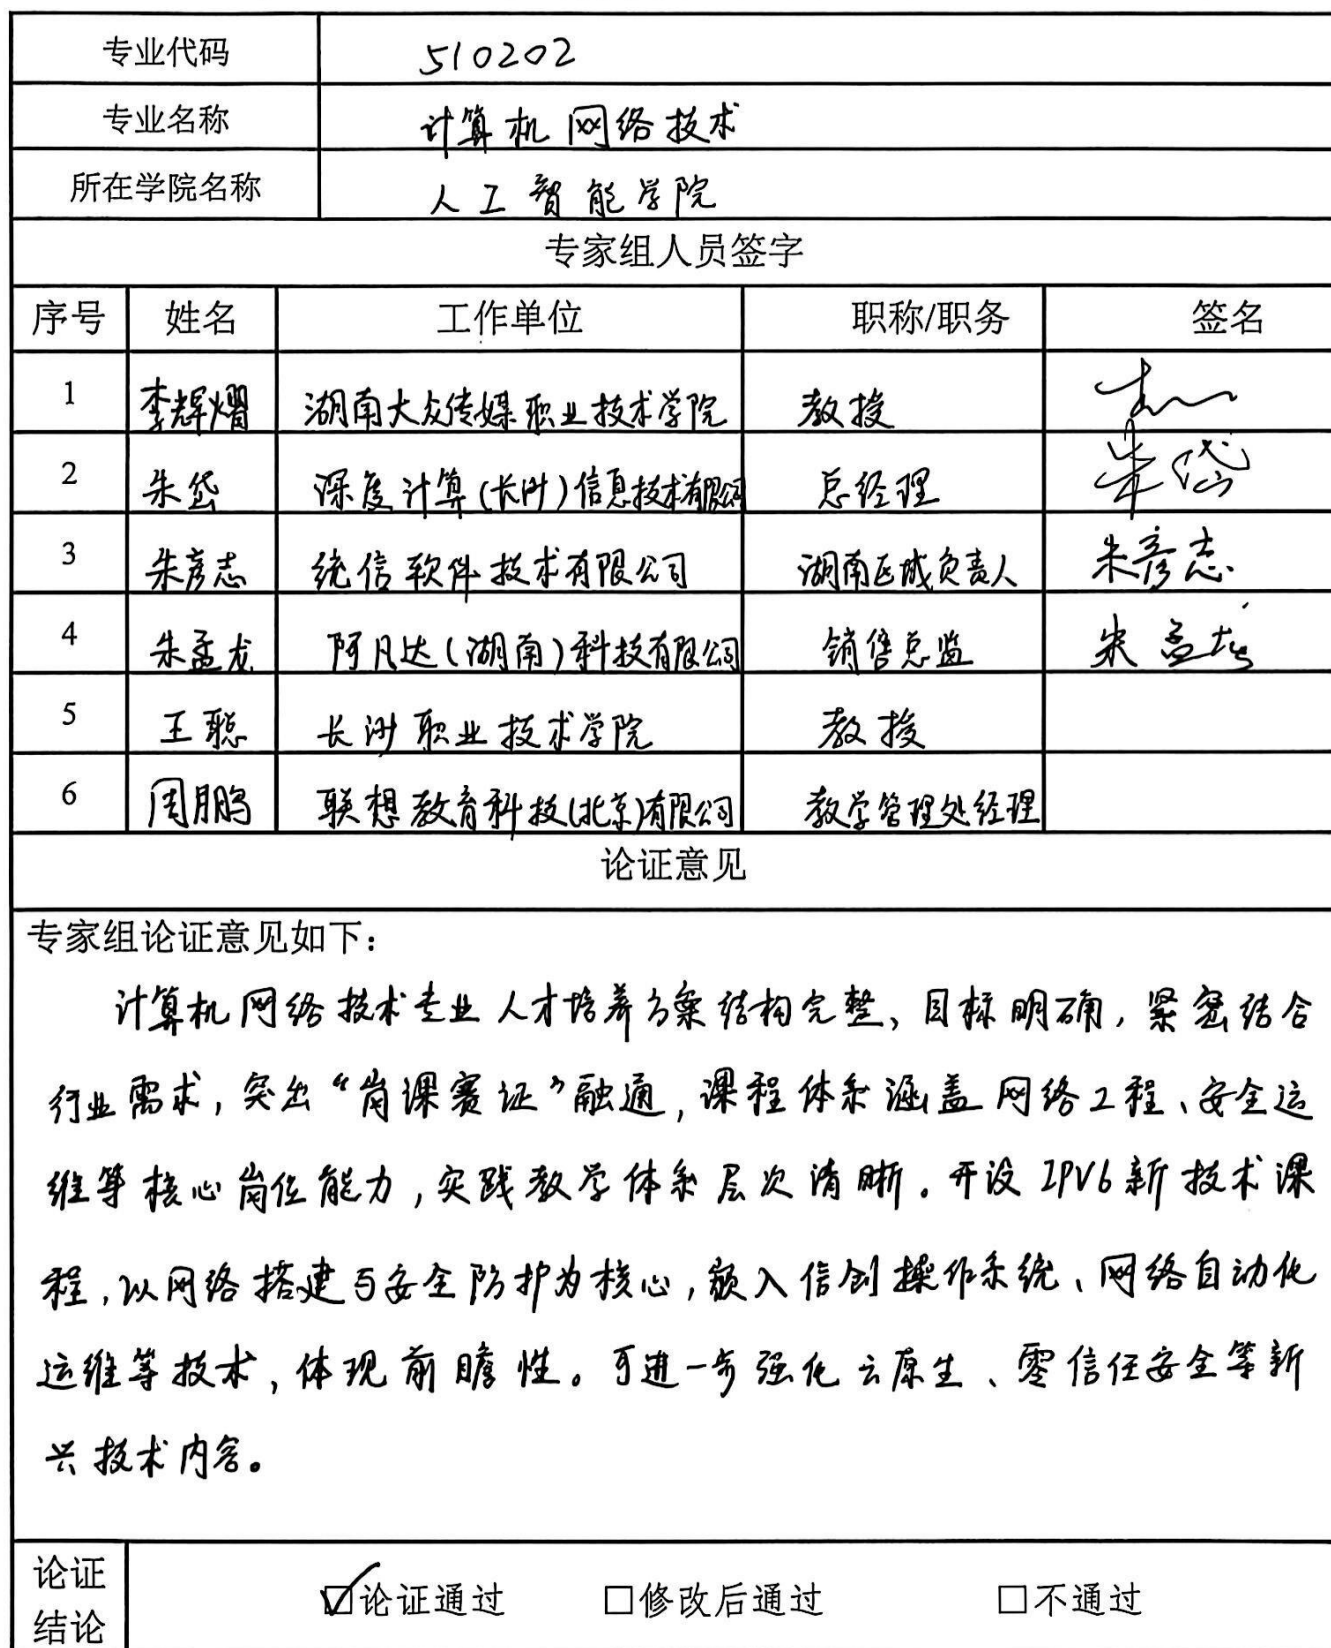 专业代码 510202
专业名称 计算机网络技术
所在学院名称 人工智能学院
专家组人员签字
序号 姓名 工作单位 职称/职务 签名
1 李辉熠 湖南大众传媒职业技术学院 教授
2 朱岱 深度计算(长沙)信息技术有限公司 总经理 朱岱
3 朱彦志 统信软件技术有限公司 湖南区域负责人 朱彦志
4 朱孟龙 阿凡达(湖南)科技有限公司 销售总监 朱孟龙
5 王聪 长沙职业技术学院 教授
6 周鹏 联想教育科技(北京)有限公司 教学管理处经理
论证意见
专家组论证意见如下：
计算机网络技术专业人才培养方案结构完整、目标明确，紧密结合
行业需求，突出“岗课赛证”融通，课程体系涵盖网络工程、安全运
维等核心岗位能力，实践教学体系层次清晰。开设IPV6新技术课
程，以网络搭建与安全防护为核心，融入信创操作系统、网络自动化
运维等技术，体现前瞻性。可进一步强化云原生、零信任安全等新
兴技术内容。
论证
结论 ☑论证通过 □修改后通过 □不通过